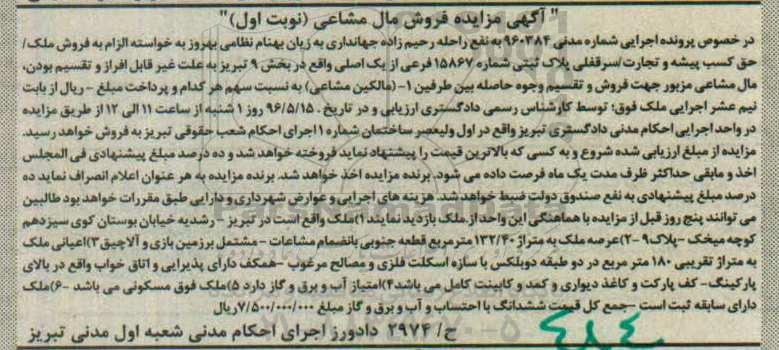 " آگهی مزایده فروش مال مشاعی (نوبت اول)"
در خصوص پرونده اجرایی شماره مدنی ۹۶۰۳۸۴ به نفع راحله رحیم زاده جهانداری به زیان بهنام نظامی بهروز به خواسته الزام به فروش ملک/
حق کسب پیشه و تجارت/سرقفلی پلاک ثبتی شماره ۱۵۸۶۷ فرعی از یک اصلی واقع در بخش ۹ تبریز به علت غیر قابل افراز و تقسیم بودن،
مال مشاعی مزبور جهت فروش و تقسیم وجوه حاصله بین طرفین ۱- (مالکین مشاعی) به نسبت سهم هر کدام و پرداخت مبلغ - ریال از بابت
نیم عشر اجرایی ملک فوق؛ توسط کارشناس رسمی دادگستری ارزیابی و در تاریخ . ۹۶/۵/۱۵ روز ۱ شنبه از ساعت ۱۱ الی ۱۲ از طریق مزایده
در واحد اجرایی احکام مدنی دادگستری تبریز واقع در اول ولیعصر ساختمان شماره ۱ اجرای احکام شعب حقوقی تبریز به فروش خواهد رسید.
مزایده از مبلغ ارزیابی شده شروع و به کسی که بالاترین قیمت را پیشنهاد نماید فروخته خواهد شد و ده درصد مبلغ پیشنهادی فی المجلس
اخذ و مابقی حداکثر ظرف مدت یک ماه فرصت داده می شود. برنده مزایده اخذ خواهد شد. برنده مزایده به هر عنوان اعلام انصراف نماید ده
درصد مبلغ پیشنهادی به نفع صندوق دولت ضبط خواهد شد. هزینه های اجرایی و عوارض شهرداری و دارایی طبق مقررات خواهد بود طالبین
می توانند پنج روز قبل از مزایده با هماهنگی این واحد از ملک بازدید نمایند ۱)ملک واقع است در تبریز - رشدیه خیابان بوستان کوی سیزدهم
کوچه میخک -پلاک۹ -۲)عرصه ملک به متراژ ۱۳۲/۴۰ متر مربع قطعه جنوبی بانضمام مشاعات - مشتمل بر زمین بازی و آلاچیق ۳)اعیانی ملک
به متراژ تقریبی ۱۸۰ متر مربع در دو طبقه دوبلکس با سازه اسکلت فلزی و مصالح مرغوب -همکف دارای پذیرایی و اتاق خواب واقع در بالای
پارکینگ- کف پارکت و کاغذ دیواری و کمد و کابینت کامل می باشد ۴)امتیاز آب و برق و گاز دارد ۵)ملک فوق مسکونی می باشد -۶)ملک
دارای سابقه ثبت است -جمع کل قیمت ششدانگ با احتساب و آب و برق و گاز مبلغ ۷/۵۰۰/۰۰۰/۰۰۰ریال
ح/ ۲۹۷۴ دادورز اجرای احکام مدنی شعبه اول مدنی تبریز